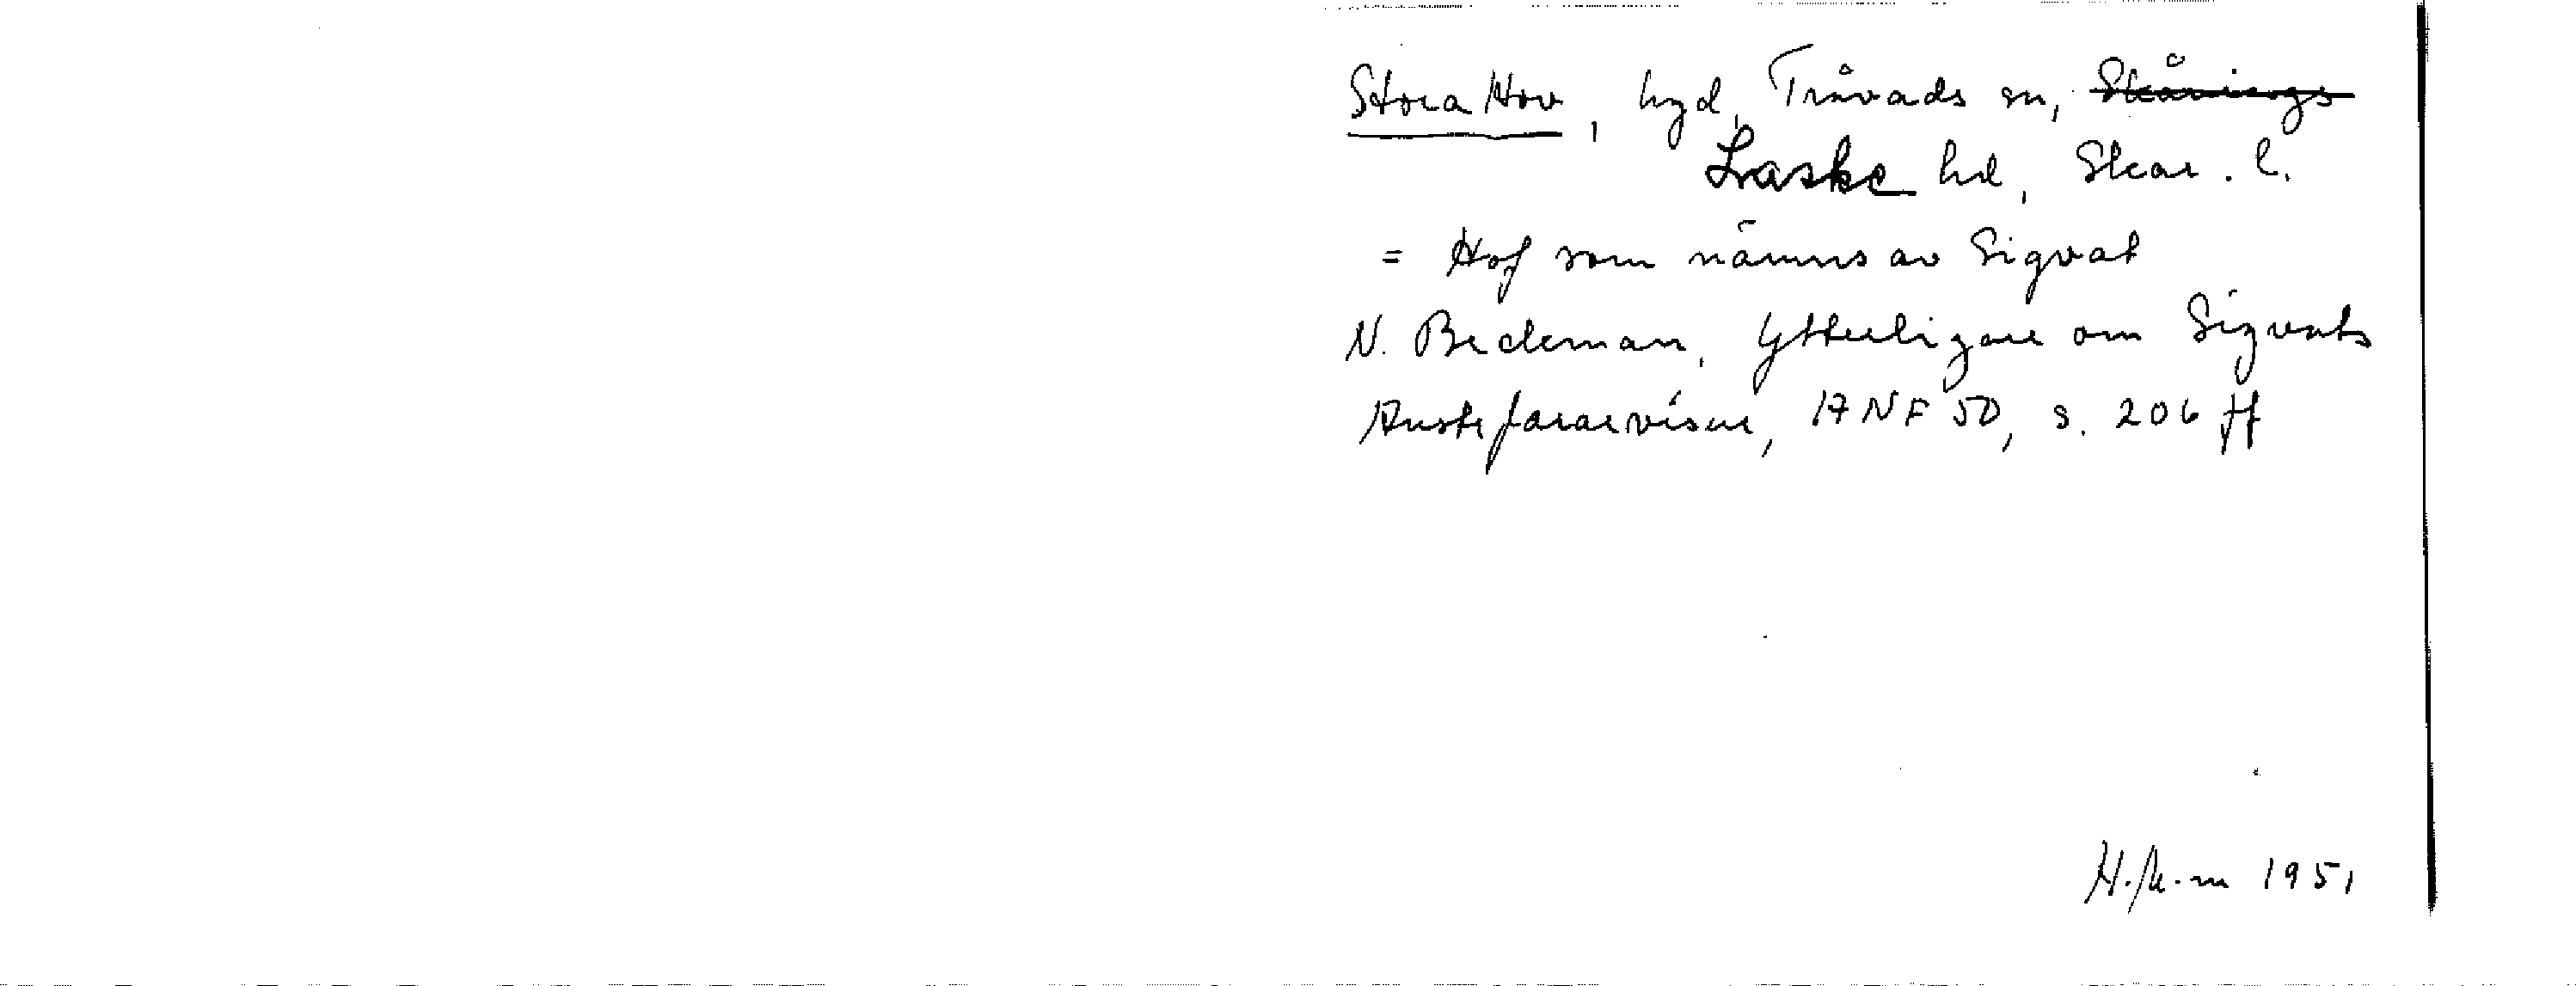 Stora Hov, hgd, Tråvads sn, Skånings
Laske hd, Skar. l.
= Hof som nämns av Sigvat
N. Beckman, Ytterligare om Sigvats
Austrfararvísur, ANF 50, s. 206 ff
1951